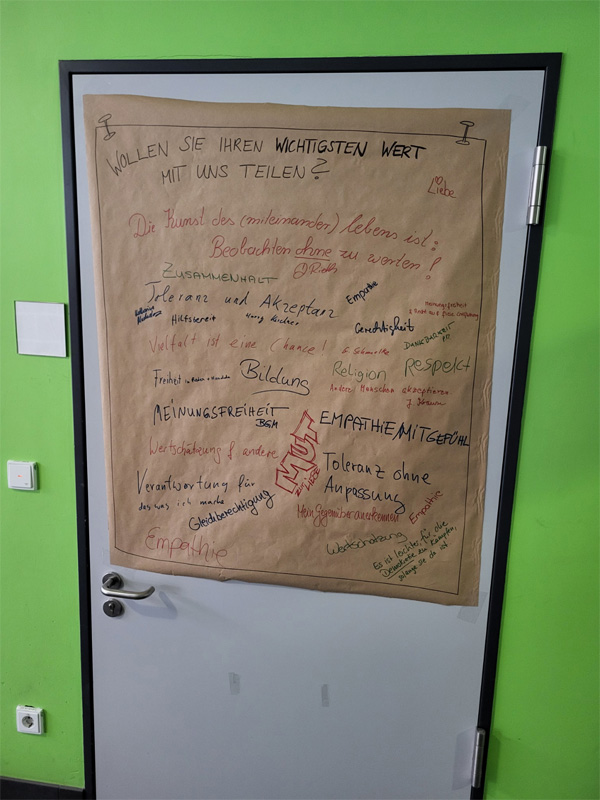 WOLLEN SIE IHREN WICHTIGSTEN WERT
MIT UNS TEILEN?
Liebe
Die Kunst des (miteinander) lebens ist:
Beobachten ohne zu werten!
ZUSAMMENHALT
Empathie
Toleranz und Akzeptanz
Hilfsbereit
Gerechtigkeit
Meinungsfreiheit
DANKBARKEIT
Vielfalt ist eine Chance!
Religion
Respekt
Freiheit
Bildung
Andere Menschen akzeptieren
MEINUNGSFREIHEIT
BGM
EMPATHIE/MITGEFÜHL
MUT
zu
LIEBE
Wertschätzung f. andere
Toleranz ohne
Anpassung
Verantwortung für
das was ich mache
Gleichberechtigung
Mein Gegenüber anerkennen
Empathie
Empathie
Wertschätzung
Es ist leichter, für die
Demokratie zu kämpfen,
solange sie da ist